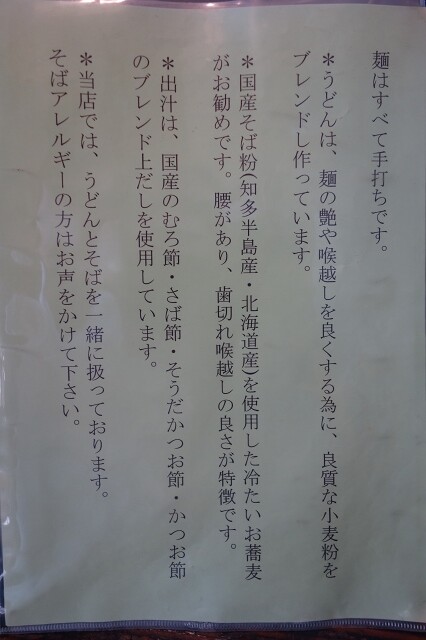 麺はすべて手打ちです。
＊うどんは、麺の艶や喉越しを良くする為に、良質な小麦粉を
ブレンドし作っています。
＊国産そば粉(知多半島産・北海道産)を使用した冷たいお蕎麦
がお勧めです。腰があり、歯切れ喉越しの良さが特徴です。
＊出汁は、国産のむろ節・さば節・そうだかつお節・かつお節
のブレンド上だしを使用しています。
＊当店では、うどんとそばを一緒に扱っております。
そばアレルギーの方はお声をかけて下さい。